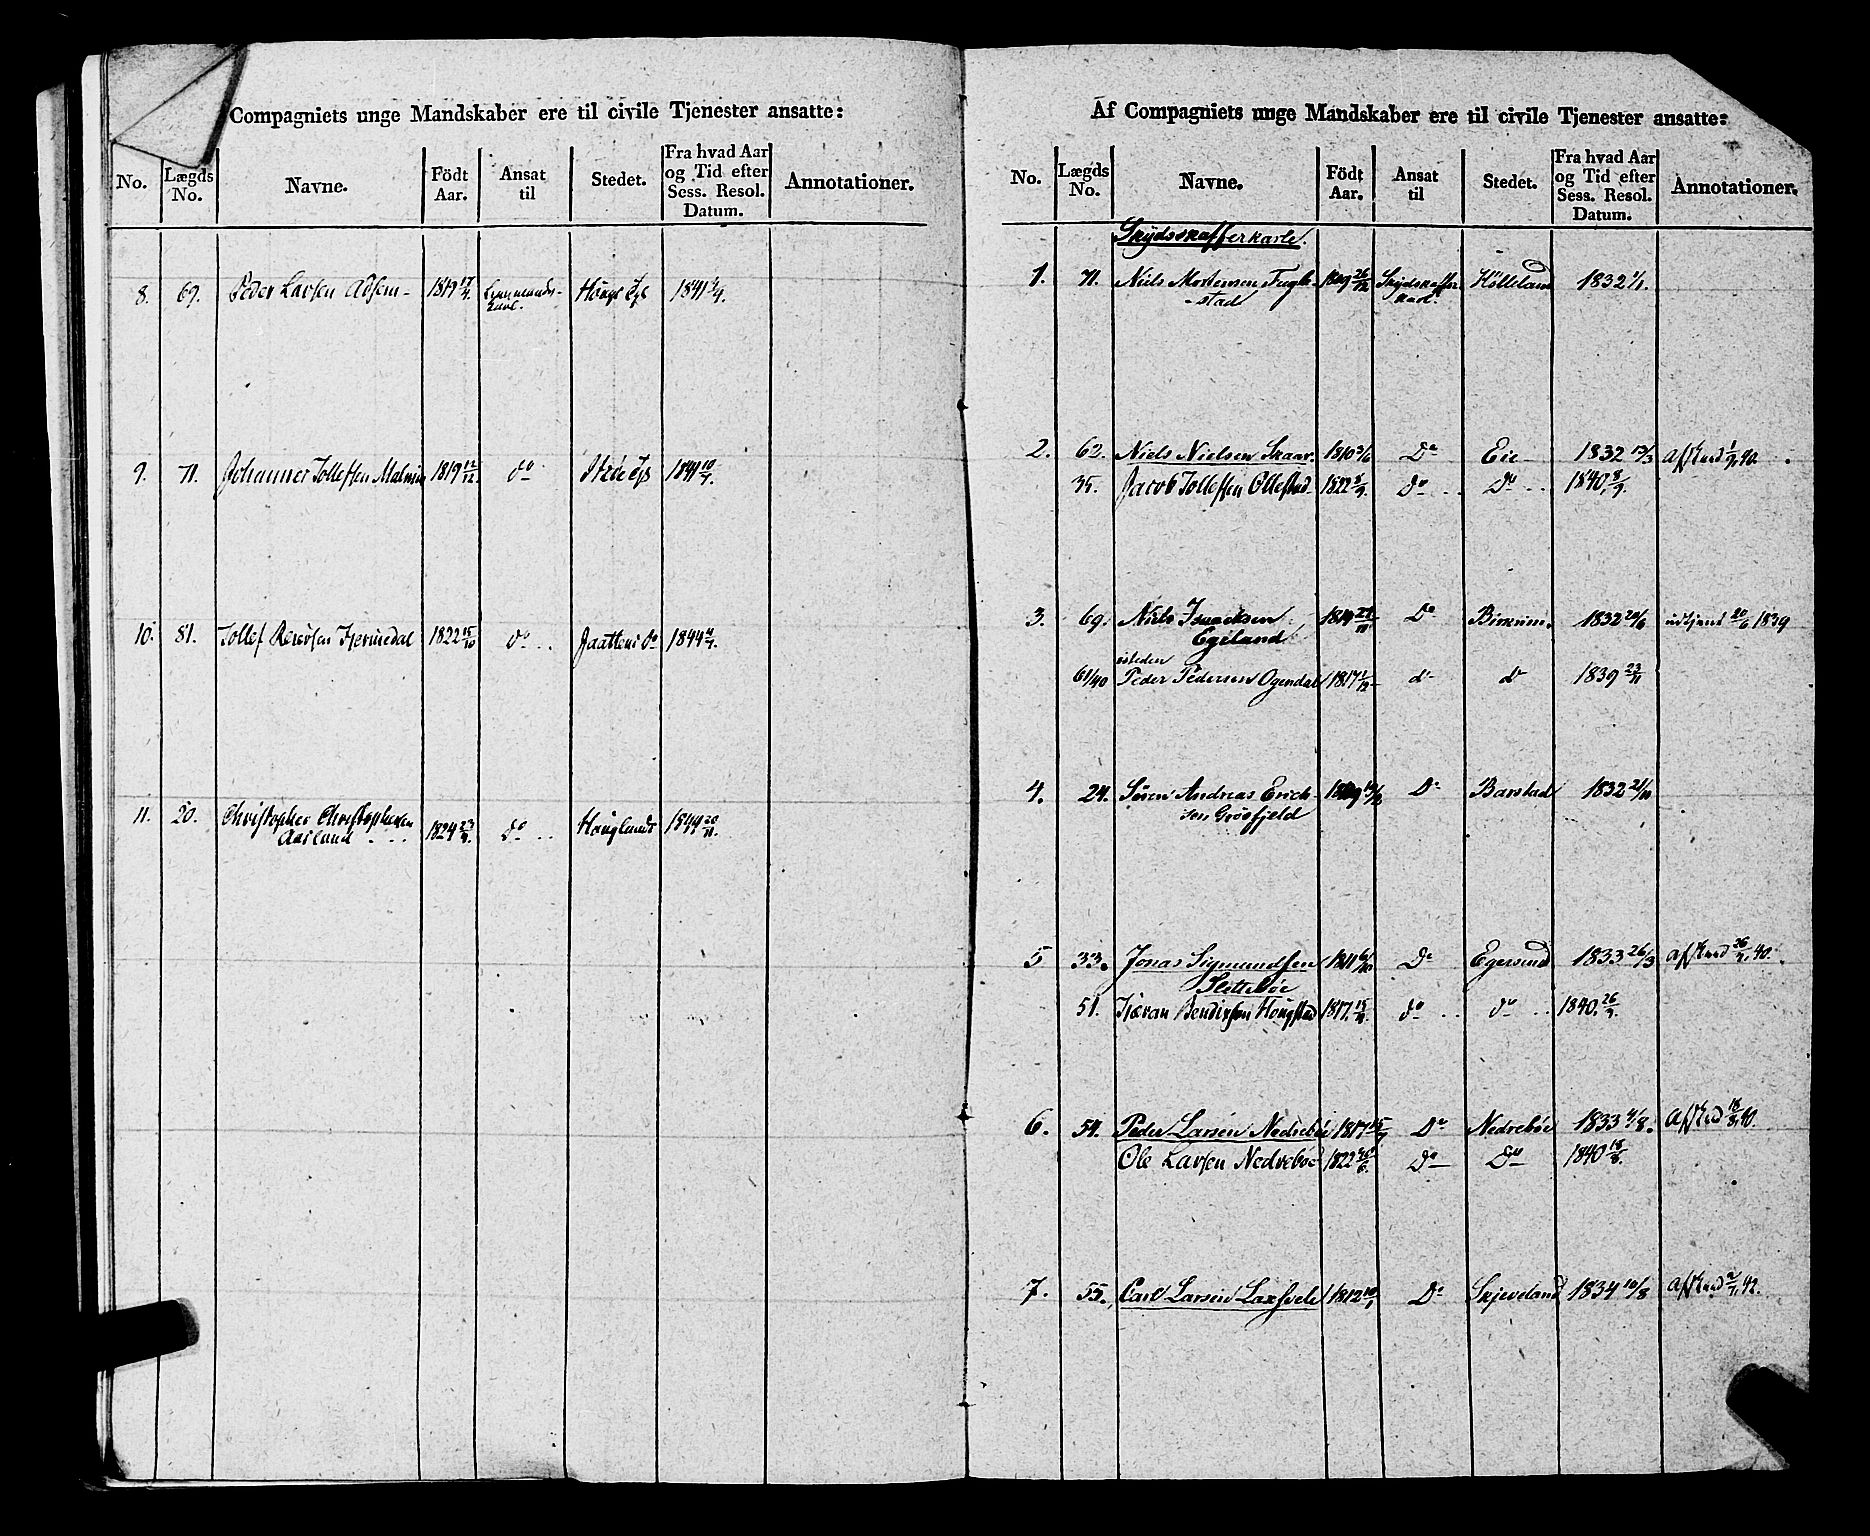 Compagniets unge Mandskaber ere til civile Tjenester ansatte:
No. Lægds No. Navne. Födt Aar. Ansat til Stedet. Fra hvad Aar og Tid efter Sess. Resol. Datum. Annotationer.
8. 69. Peder Larsen Adsem 1819 17/4. Lensmands- karl. 1841 1/4.
9. 71. Johannes Tollefsen 1819 12/12 do 1841 10/7.
10. 81. Tollef 1822 15/10 do 1844 4/7.
11. 20. Christopher Christophersen
Aasland 1824 23/9. do 1844 20/11.
Af Compagniets unge Mandskaber ere til civile Tjenester ansatte:
No. Lægds No. Navne. Födt Aar. Ansat til Stedet. Fra hvad Aar og Tid efter Sess. Resol. Datum. Annotationer.
Skydsskafferkarle.
1. 71. Niels Mortensen Fugle- 1809 26/12 Skydsskaffer Hölleland 1832 1/1.
-stad karl.
2. 62. Niels Nielsen Skaar. 1810 3/6 Do Eie 1832 13/3 afskeed 1/9, 40.
35. Jacob Tollefsen Ollestad 1822 5/9. Do Do 1840, 8/9.
3. 69. Niels Isaachsen 18 Do Birkrem. 1832 20/6 udtjent 20/6 1839
Egeland
isteden
61/40 Peder Pedersen Ogendal 1817 1/12 do do 1839 23/11
4. 24. Sören Andreas Erich- Do Barstad 1832 21/10
sen Grösfjeld
5 33. Jonas Sigmundsen 1811 6/10 Do Egersund 1833 26/3 afskeed 26/9, 40.
Sletteböe
51. Tjæran Bendixsen Hougstad 1817. 15/9. do do 1840. 26/9.
6. 54. Peder Larsen Nedreböe 1817 15/7 Do Nedreböe 1833 4/8. afskeed 18/8, 40.
Ole Larsen Nedreböe 1822 30/6. Do Do 1840 18/8.
7. 55. Carl Larsen Laxsvele 1812 10/1 Do Skjeveland 1834 10/8 afskeed 2/7, 42.